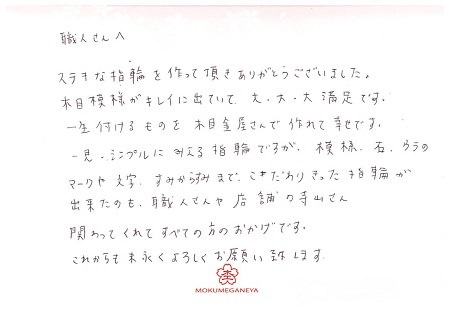 職人さんへ
ステキな指輪を作って頂きありがとうございました。
木目模様がキレイに出ていて、大・大・大満足です。
一生付けるものを木目金屋さんで作れて幸せです。
一見・シンプルにみえる指輪ですが、模様、石、ウラの
マークや文字、すみからすみまで、こだわりきった指輪が
出来たのも、職人さんや店舗の寺山さん
関わってくれてすべての方のおかげです。
これからも末永くよろしくお願い致します。
MOKUMEGANEYA